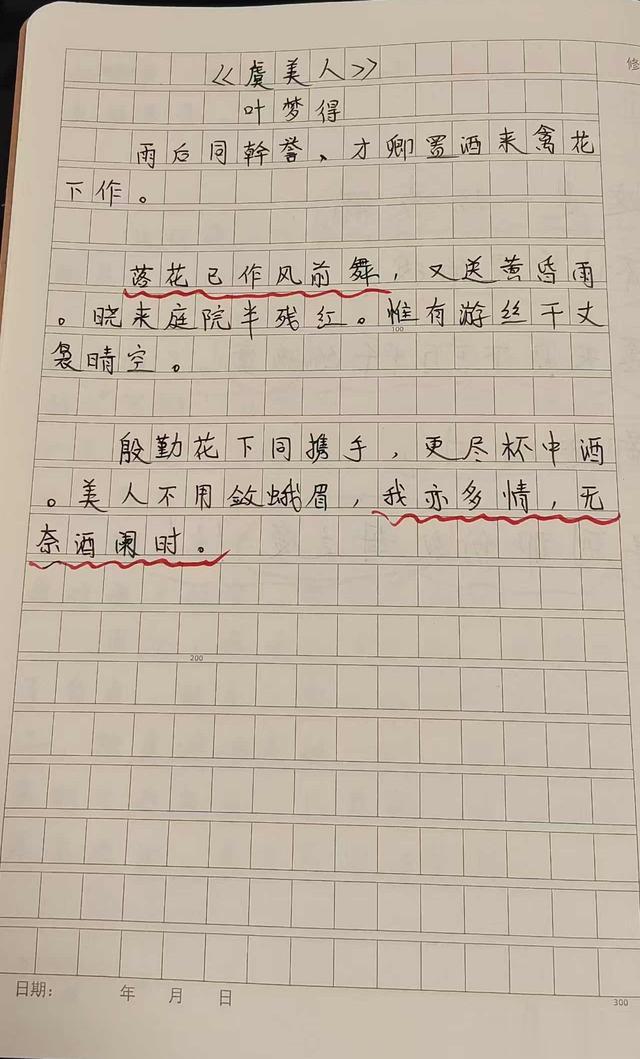 修
《虞美人》
叶梦得
雨后同幹誉、才卿置酒来禽花
下作。
落花已作风前舞，又送黄昏雨
。晓来庭院半残红。惟有游丝千丈
100
袅晴空。
殷勤花下同携手，更尽杯中酒
。美人不用敛蛾眉，我亦多情，无
奈酒阑时。
200
日期： 年 月 日
300